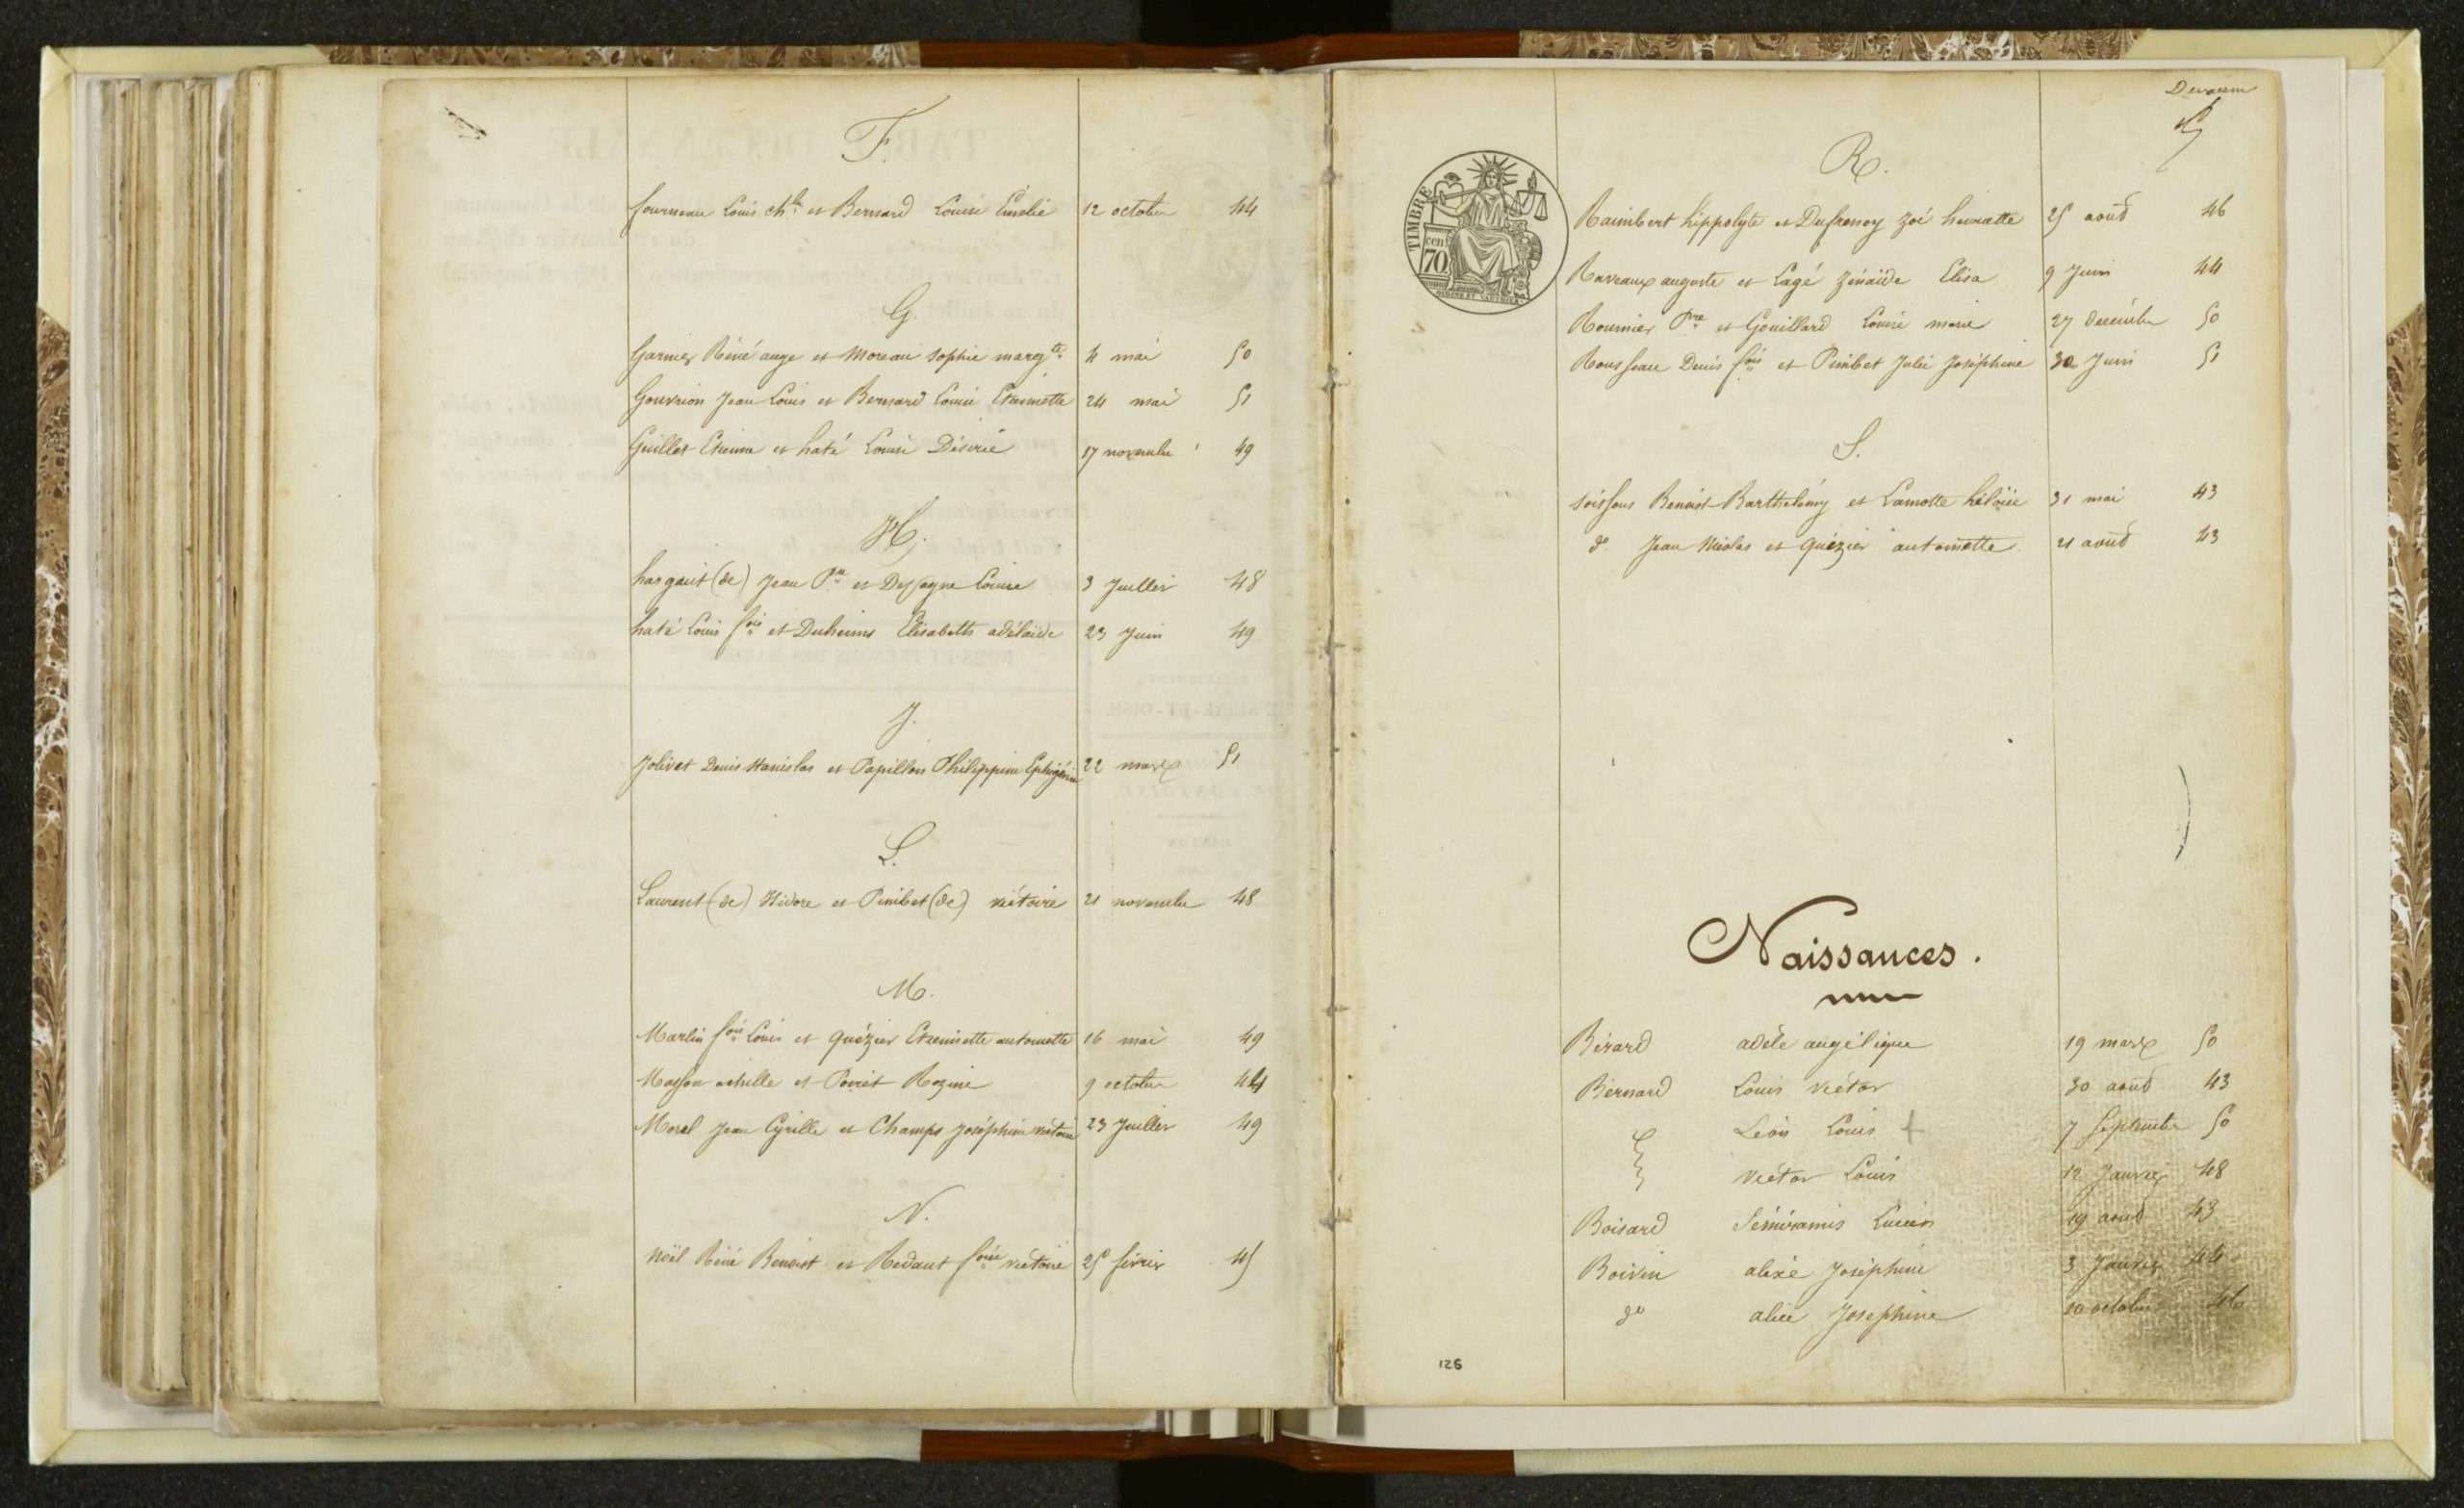 F.
fourneau Louis ch.les et Bernard Louise Emélie 12 octobre 44
G.
Garnier Réné ange et Moreau Sophie marg.te 4 mai 50
Gouvrion Jean Louis et Bernard Louise Etiennette 24 mai 51
Guillet Etienne et haté Louise Désirée 17 novembre 49
H.
hargaut (de) Jean P.re et Dessagne Louise 3 Juillet 48
haté Louis f.ois et Duheims Elisabeth adélaïde 23 Juin 49
J.
Jolivet Denis Stanislas et Papillon Philippine Ephigénie 22 mars 51
L.
Laurent (de) Isidore et Pimbet (de) victoire 21 novembre 48
M.
Marlin f.ois Louis et Quézier Etiennette antoinette 16 mai 49
Masson achille et Poiret Rozine 9 octobre 44
Morel Jean Cyrille et Champs Joséphine victoire 23 Juillet 49
N.
Noël Réné Benoist et Redaut f.oise victoire 25 févrie 45
TIMBRE
70 cen
R.
Raimbert hippolyte et Dufrenoy Zoé henriette 25 août 46
Raveaux auguste et Lagé Zénaïde Elisa 9 Juin 44
Roumier P.re et Gouillard Louise marie 27 décembre 50
Rousseau Denis f.ois et Pimbet Julie Joséphine 30 Juin 51
S.
Soissons Benoist Barthelémy et Lamotte héloïse 31 mai 43
d.o Jean Nicolas et Quézier antoinette 21 août 43
Naissances.
Bérard adèle angélique 19 mars 50
Bernard Louis victor 30 août 43
Léon Louis 7 Septembre 50
victor Louis 12 Janvier 48
Boisard Sémiramis Lucien 19 août 43
Boivin alexé Joséphine 3 Janvier 44
d.o alice Josephine 10 octobre 46
126